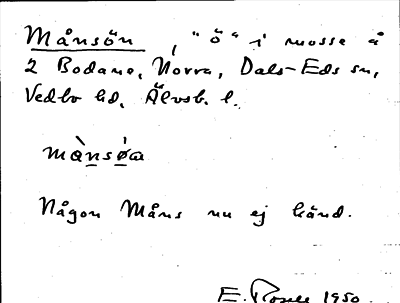 Månsön, "ö" i mosse å
2 Bodane, Norra, Dals-Eds sn,
Vedbo hd, Älvsb. l.
mànsøa
Någon Måns nu ej känd.
E. 1950